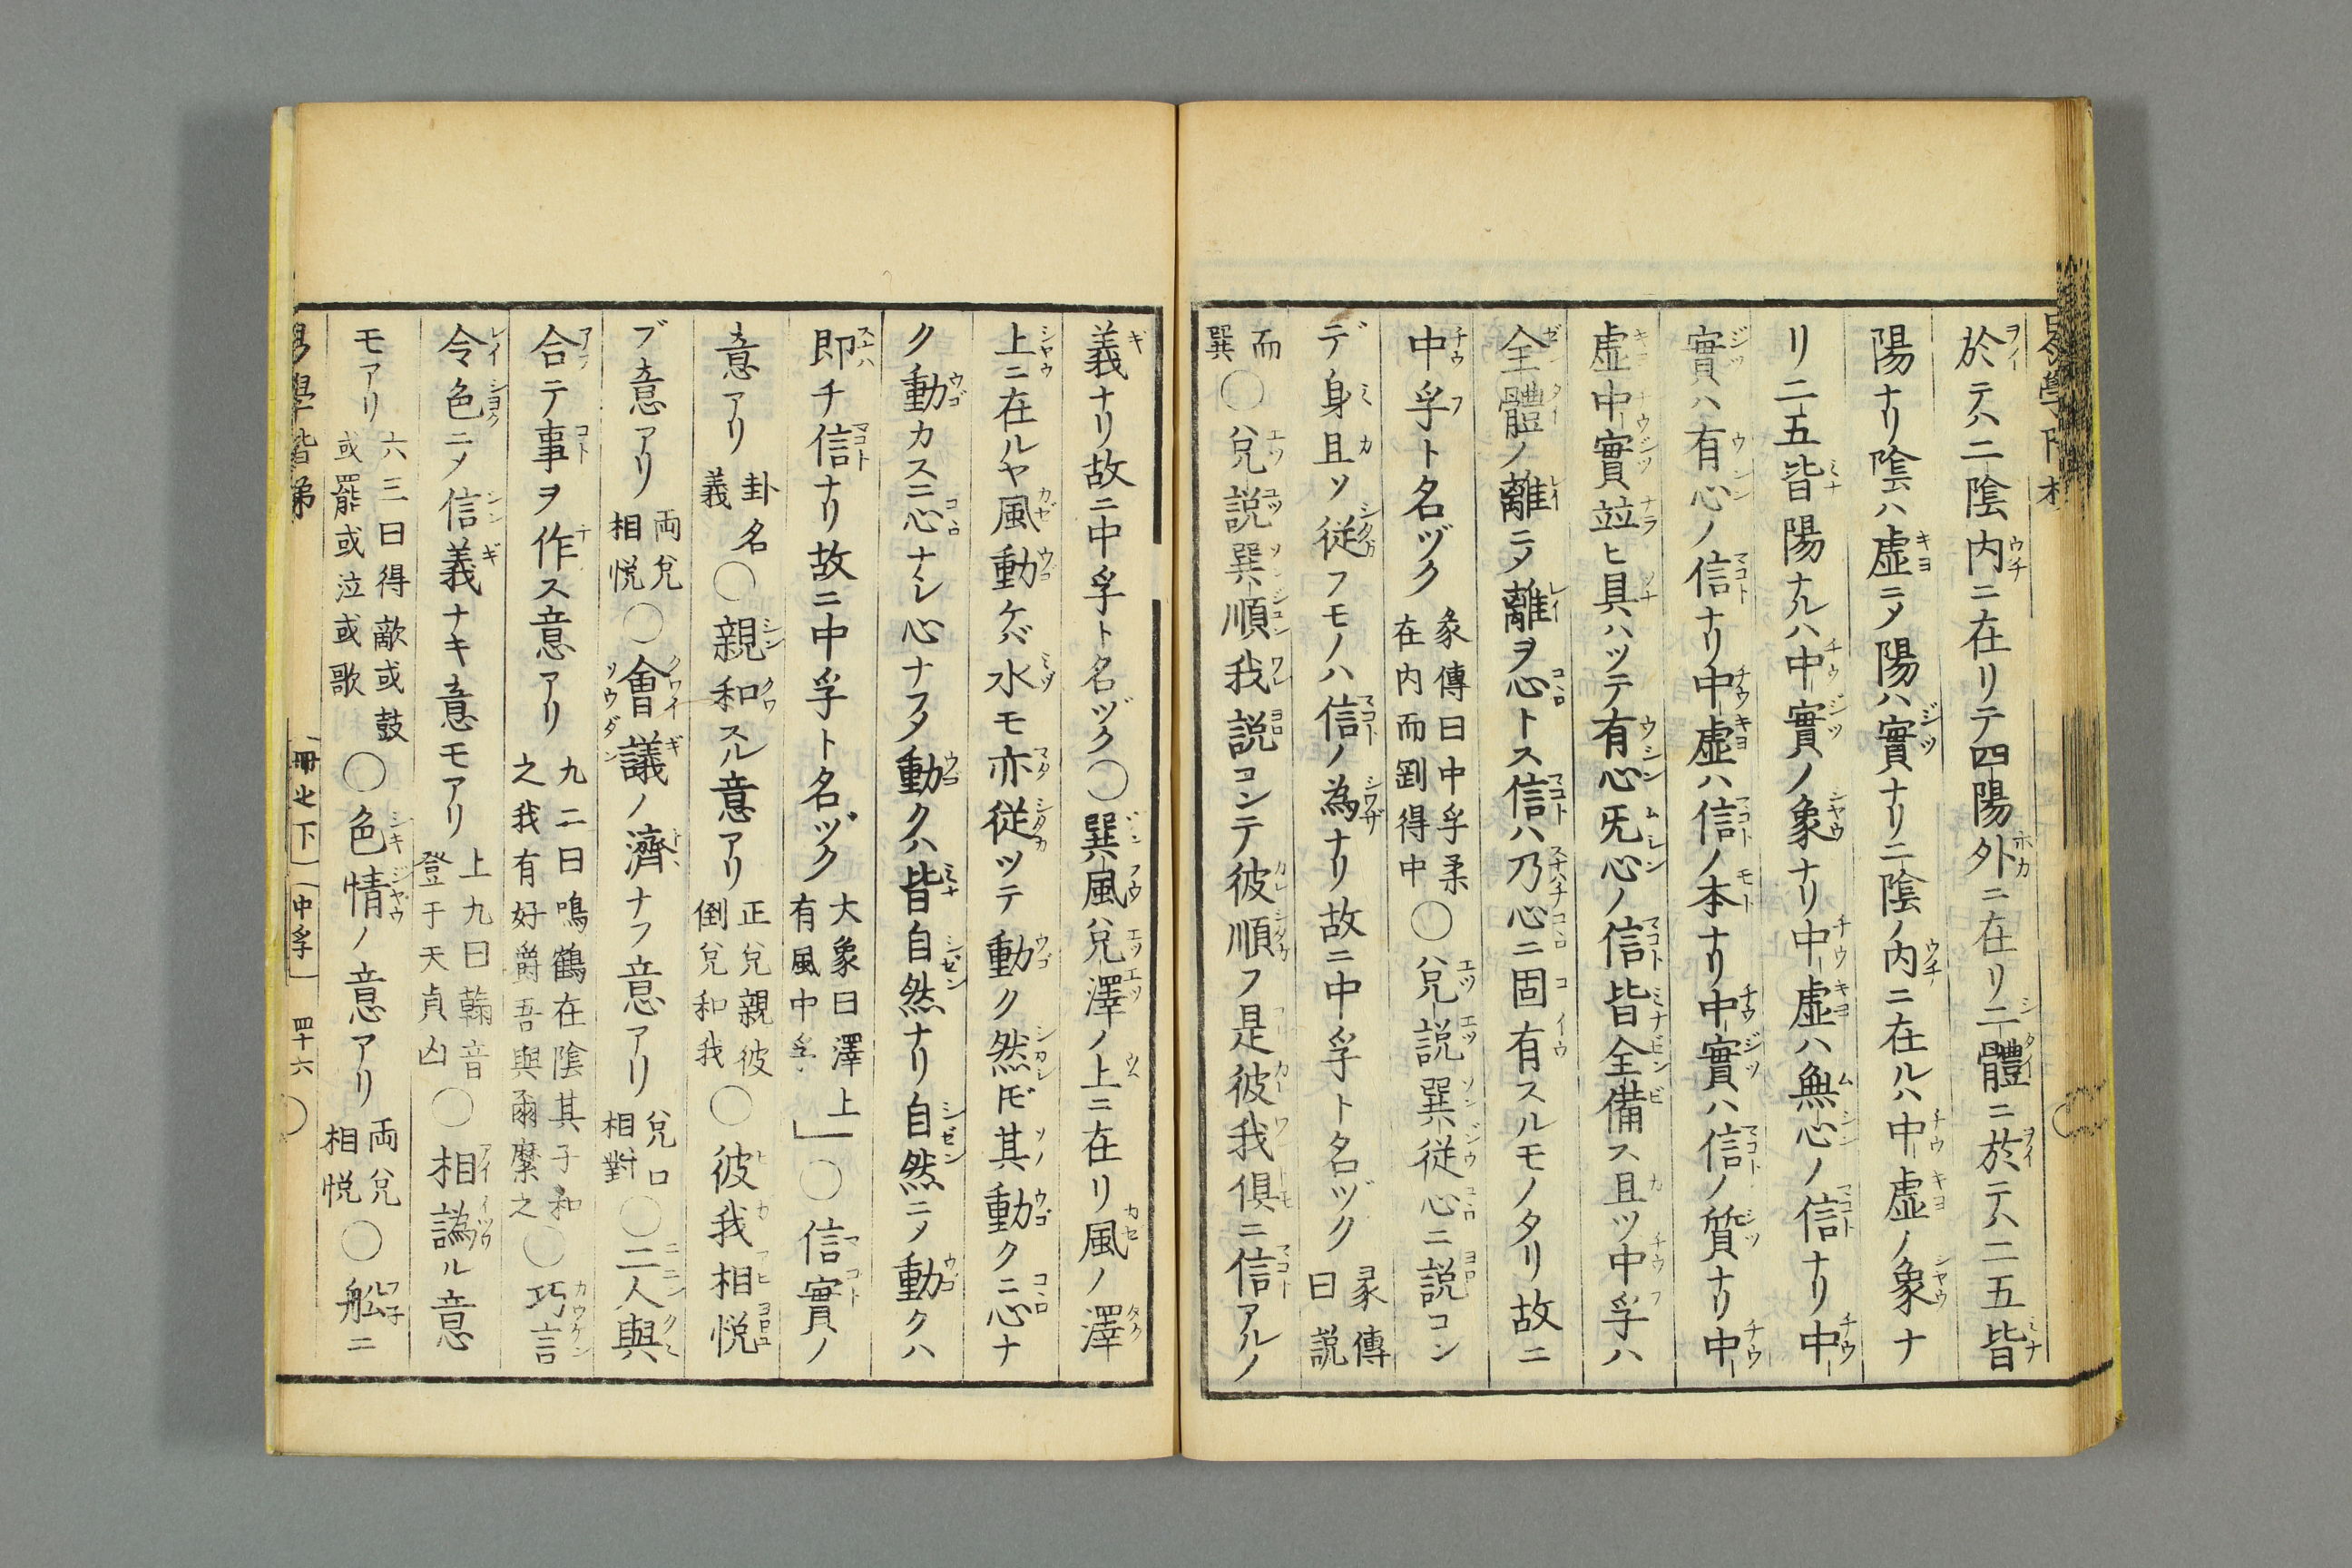 於テハ二陰内ニ在リテ四陽外ニ在リ二體ニ於テハ二五皆
陽ナリ陰ハ虚ニメ陽ハ實ナリ二陰ノ内ニ在ルハ中虚ノ象ナ
リ二五皆陽ナルハ中實ノ象ナリ中虚ハ無心ノ信ナリ中
實ハ有心ノ信ナリ中虚ハ信ノ本ナリ中實ハ信ノ質ナリ中
虚中實竝ヒ具ハツテ有心旡心ノ信皆全備ス且ツ中孚ハ
全體ノ離ニメ離ヲ心トス信ハ乃心ニ固有スルモノタリ故ニ
中孚ト名ヅク彖傳曰中孚柔在内而剛得中〇兌説巽従心ニ説コン
デ身且ツ従フモノハ信ノ為ナリ故ニ中孚ト名ヅク彖傳曰説
而巽〇兌説巽順我説コンテ彼順フ是彼我倶ニ信アルノ
義ナリ故ニ中孚ト名ヅク〇巽風兌澤ノ上ニ在リ風ノ澤
上ニ在ルヤ風動ケバ水モ亦従ツテ動ク然ドモ其動クニ心ナ
ク動カスニ心ナシ心ナフメ動クハ皆自然ナリ自然ニメ動クハ
即チ信ナリ故ニ中孚ト名ヅク大象曰澤上有風中孚」〇信實ノ
意アリ卦名義〇親和スル意アリ正兌親彼倒兌和我〇彼我相悦
ブ意アリ両兌相悦〇會議ノ濟ナフ意アリ兌口相對〇二人與
合テ事ヲ作ス意アリ九二曰鳴鶴在陰其子和之我有好爵吾與爾縻之〇巧言
令色ニメ信義ナキ意モアリ上九曰翰音登于天貞凶〇相譌ル意
モアリ六三曰得敵或鼓或罷或泣或歌〇色情ノ意アリ両兌相悦〇船ニ
易學階梯 冊之下 中孚 四十六